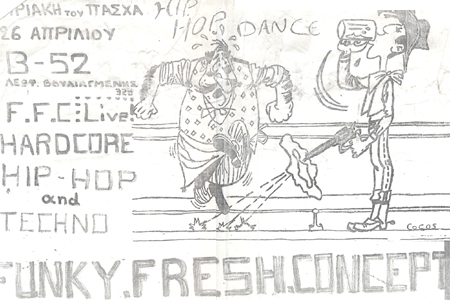 ΚΥΡΙΑΚΗ του ΠΑΣΧΑ
26 ΑΠΡΙΛΙΟΥ
B-52
ΛΕΩΦ. ΒΟΥΛΙΑΓΜΕΝΗΣ
328
F.F.C: Live!
HARDCORE
HIP-HOP
and
TECHNO
HIP
HOP DANCE
COGOS
FUNKY.FRESH.CONCEPT